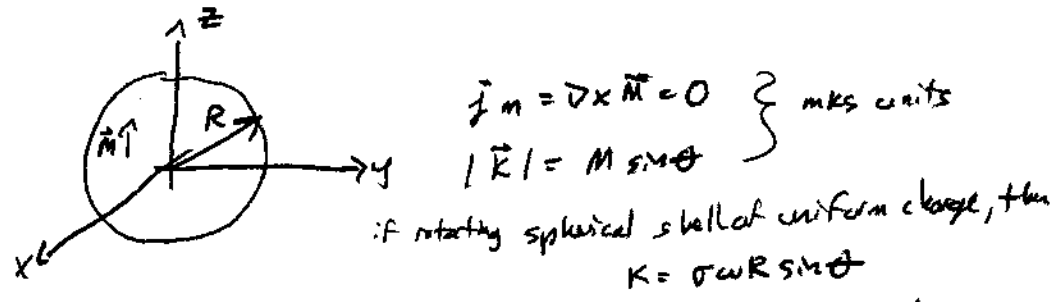 z
R
M⃗↑
y
x
j⃗m = ∇×M⃗ = 0 } mks units
|K⃗| = M sinθ
if rotating spherical shell of uniform charge, then
K = σωR sinθ